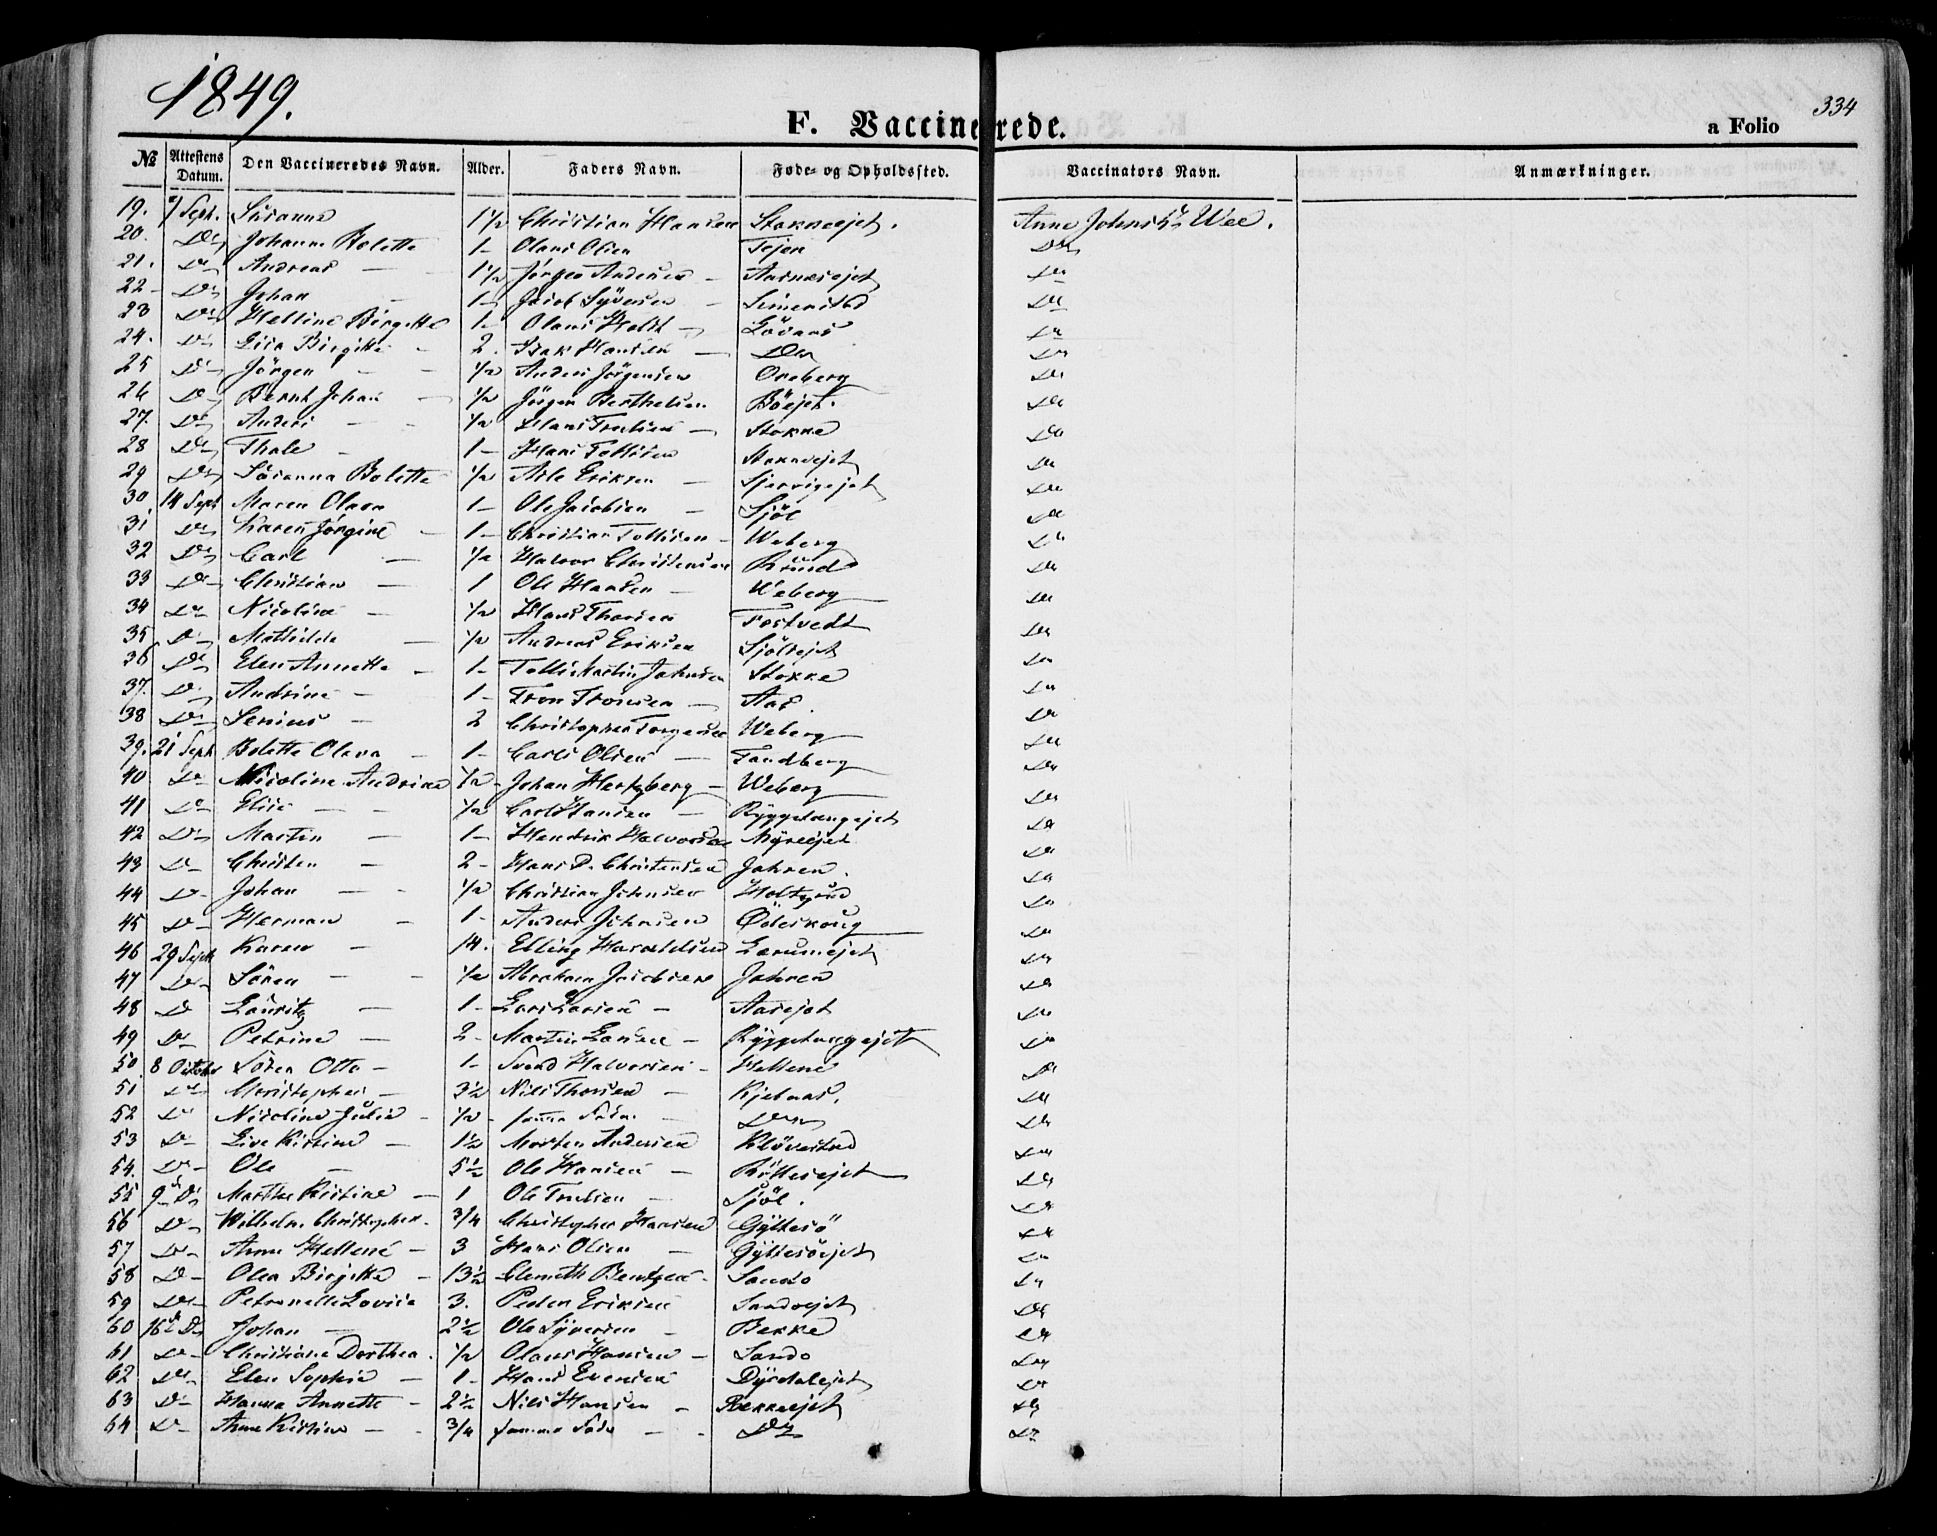 1849.
F. Vaccinerede.
a Folio
334
№ Attestens Datum. Den Vaccineredes Navn. Alder. Faders Navn. Føde- og Opholdssted. Vaccinators Navn. Anmærkninger.
19. 7 Sept. 1½ Christian Hansen Stokkeejet. Anne Wee.
20. Do Johanne Bolette 1 - Olaus Olsen Tejen Do
21. Do Andreas - 1½ Jørgen Andersen - Do
22 - Do Johan - 1 - Jacob Syversen - Do
23 Do Helline Birgitte 1 - Olaus Holdt - Do
24. Do Birgitte - 2. Isak Hansen - Do Do
25 Do Jörgen - - ½ Anders Jörgensen Oreberg Do
26 Do Bernt Johan - ½ Jörgen Berthelsen Böejet. Do
27. Do Anders - - ½ Hans Trulsen - Stokke Do
28 Do Thale - 1 - Hans Tollefsen Stokkeejet Do
29 Do Susanna Bolette ½ Atle Eriksen - Do
30 14 Sept Maren Olava 1 - Ole Jacobsen - Sjöl Do
31 Do Karen Jörgine - 1 - Christian Tollefsen - Weberg Do
32 Do Carl - ½ Halvor Christensen Do
33 Do Christian - 1 Ole Hansen - Weberg Do
34 Do Nicoline - ½ Hans Thorsen Fostvedt Do
35 Do Mathilde - ½ Andreas Eriksen Sjölsejet Do
36 Do Elen Annette - 1 - Martin Johnsen Stokke Do
37. Do Andrine - 1 - Tron Tronsen - Aas. Do
38 Do Senius - 2 Christopher Torgersen Weberg Do
39. 21 Sept Bolette Olava - 1 - Carls Olsen - Tandberg Do
40 Do Nicoline Andrine ½ - Johan Hertzberg - Weberg Do
41 Do Elise - - ½ Carl Hansen - Do
42 Do Martin - 1 - Hendrik Halvorsen Do
43 Do Christen - 2 - Hans P. Christensen Jahren. Do
44 Do Johan - - ½ Christian Johnsen Do
45 Do Herman - 1 - Anders Johnsen Ödeskoug Do
46 29 Sept Karen - 14. Elling Haraldsen Do
47 Do Sören - - ½ Abraham Jacobsen Jahren Do
48 Do Lauritz - 1 - Lars Larsen - Aasejet Do
49 Do Petrine - 2 - Martin Larsen - Do
50 8 October Sören Otto - 1 - Svend Halvorsen - Do
51 Do Christopher - 3½ Nils Thorsen - Kjelnæs. Do
52 Do Nicoline Julie - ½ - samme Fader Do Do
53 Do Live Kirstine - 1½ Morten Andersen Klövestad Do
54. Do Ole - 5½ Ole Hansen - Do
55 9de Do Marthe Kirstine - 1 Ole Trulsen - Sjöl. Do
56 Do Wilhelm Christopher. ¾ Christopher Hansen Do
57 Do Anne Hellene - 3 Hans Olsen - Do
58 Do Olea Birgitte - 13½ Clemeth Bentsen - Sando Do
59 Do Petronelle Lovise 3. Peder Eriksen Sandoejet Do
60 16de Do Johan - 2½ Ole Syversen - Bekke Do
61 Do Christiane Dorthea. ½ Olaus Hansen - Sando Do
62 Do Elen Sophie - 1 - Hans Evensen Dyrdalejet Do
63 Do Hanna Annette - 2½ Nils Hansen - Bekkeejet Do
64 Do Anne Kirstine - - ¾ samme Fader - - Do Do